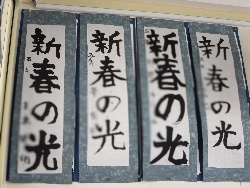 新春の光
新春の光
新春の光
新春の光